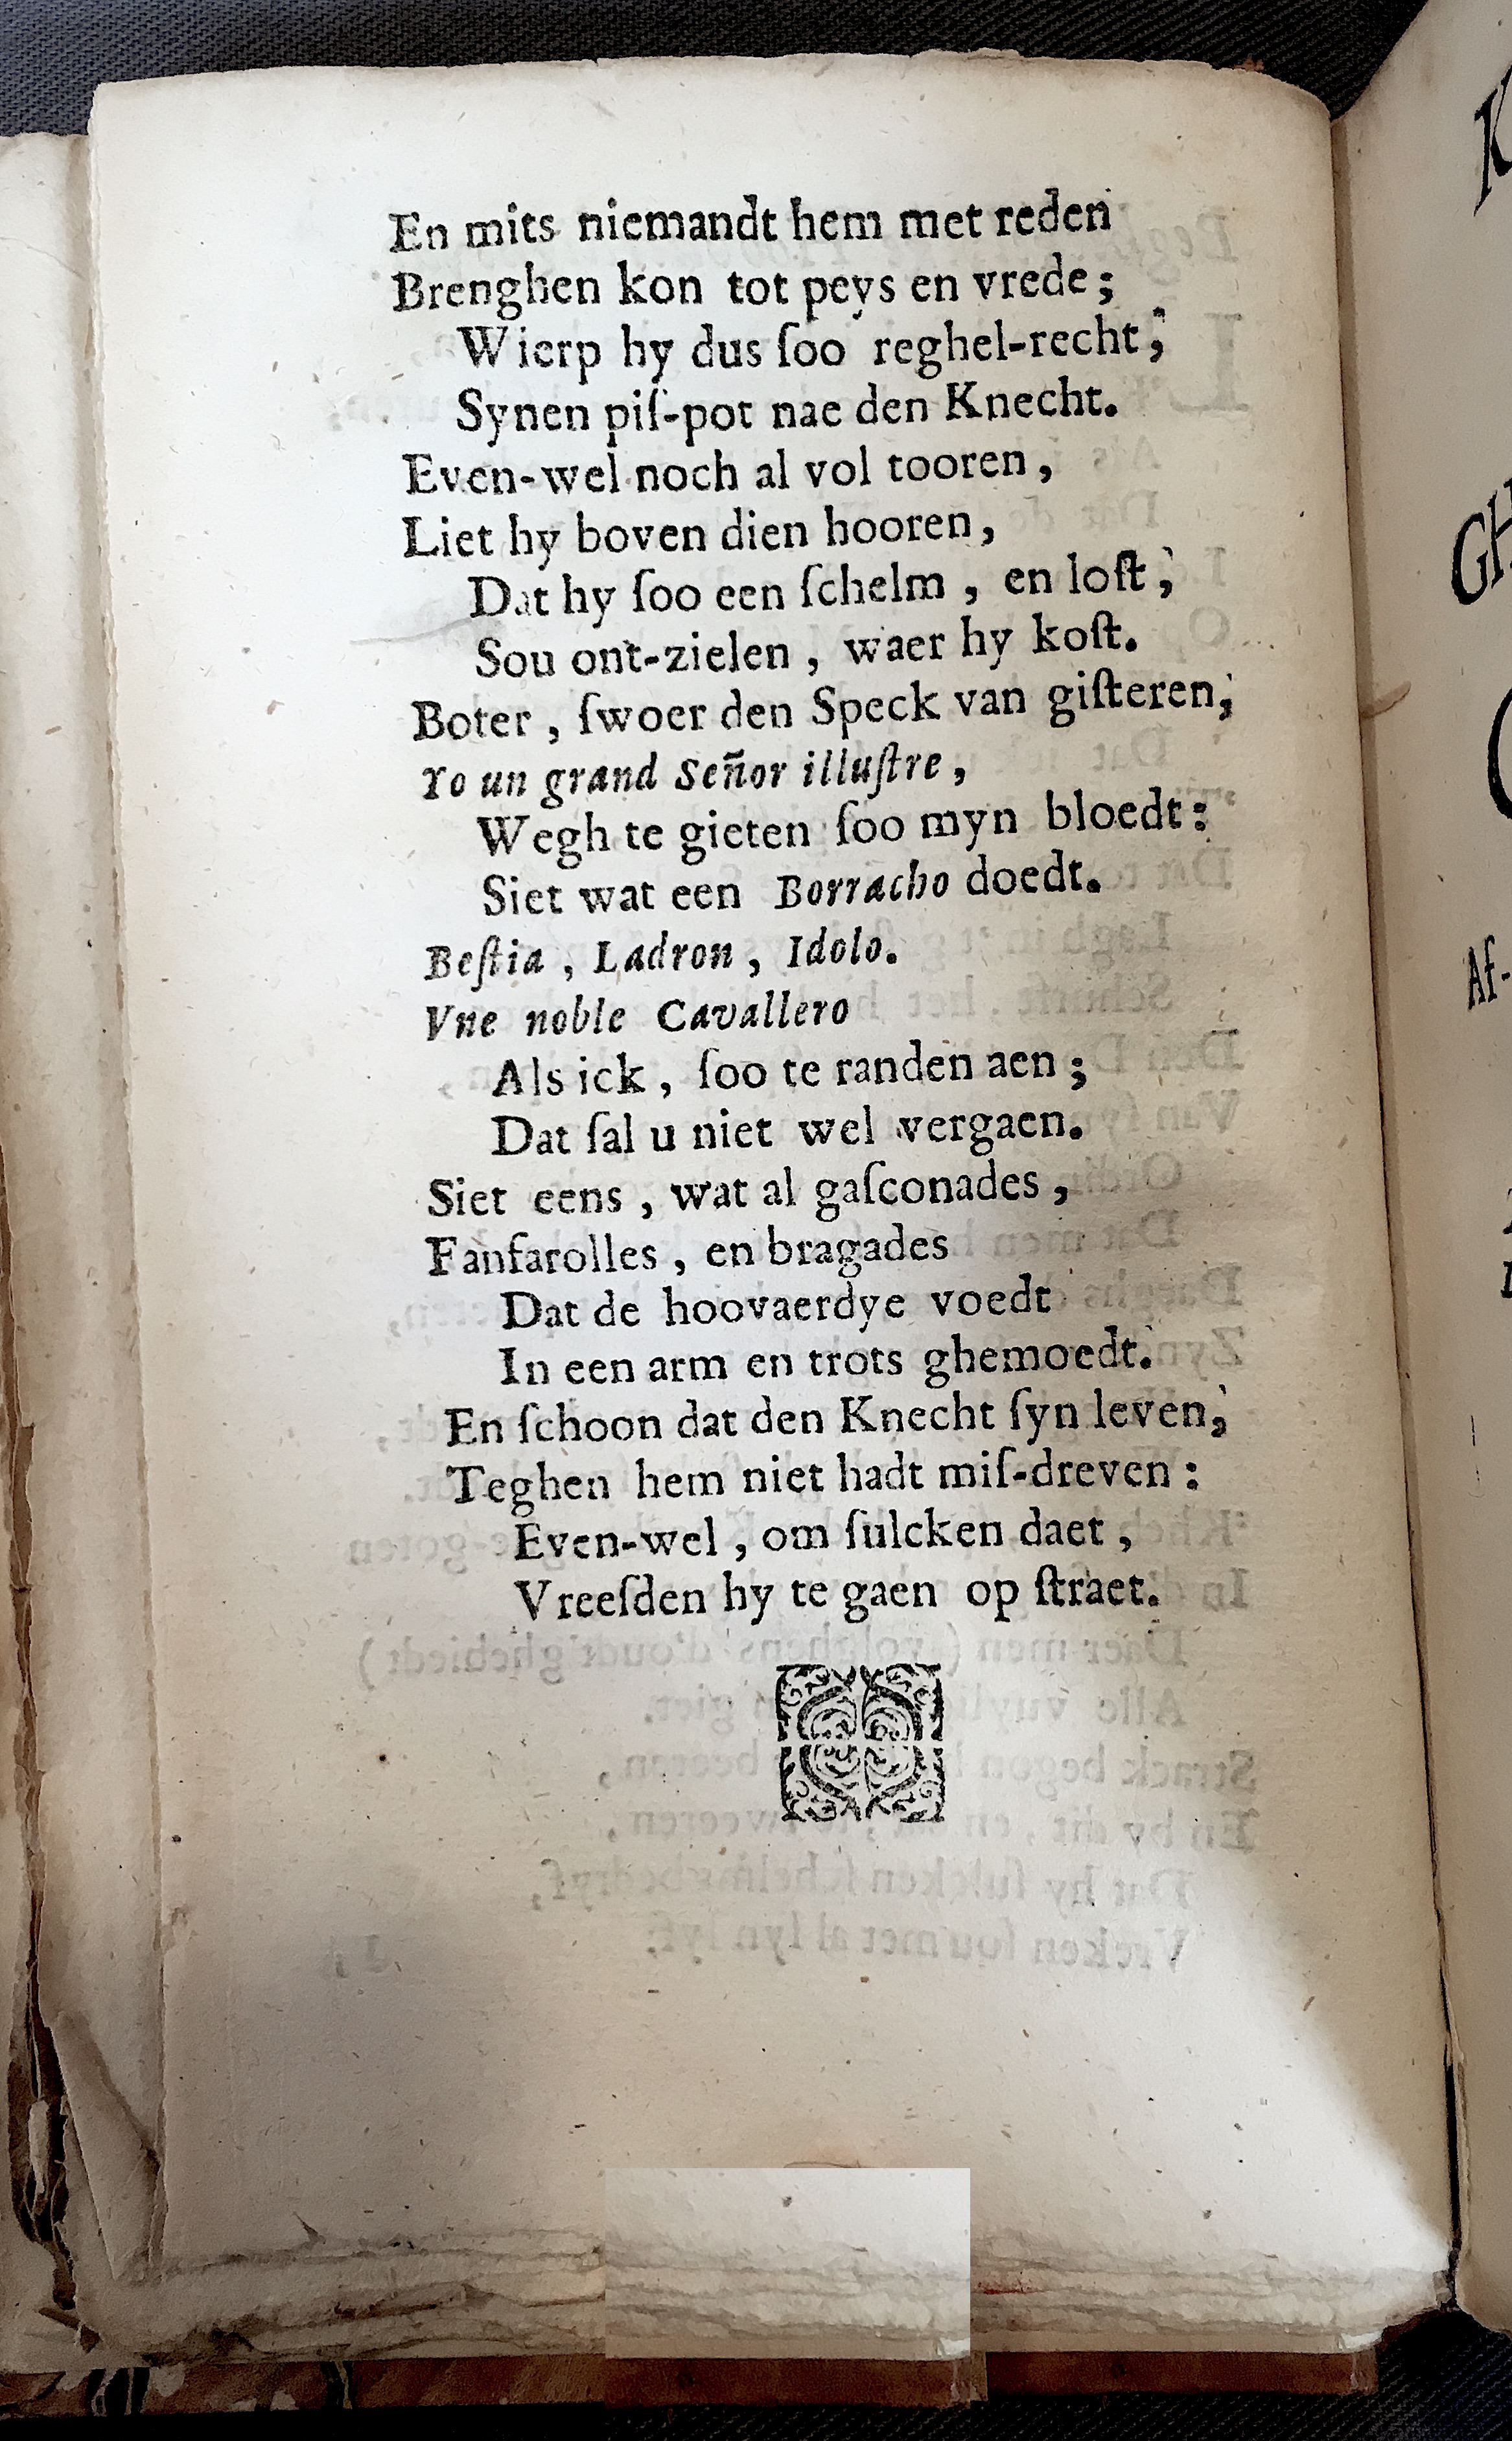 En mits niemandt hem met reden
Brenghen kon tot peys en vrede;
Wierp hy dus ſoo reghel-recht,
Synen piſ-pot nae den Knecht.
Even-wel noch al vol tooren,
Liet hy boven dien hooren,
Dat hy ſoo een ſchelm, en loſt,
Sou ont-zielen, waer hy koſt.
Boter, ſwoer den Speck van giſteren,
Yo un grand Señor illuſtre,
Wegh te gieten ſoo myn bloedt:
Siet wat een Borracho doedt.
Beſtia, Ladron, Idolo.
Vne noble Cavallero
Als ick, ſoo te randen aen;
Dat ſal u niet wel vergaen.
Siet eens, wat al gaſconades,
Fanfarolles, en bragades
Dat de hoovaerdye voedt
In een arm en trots ghemoedt.
En ſchoon dat den Knecht ſyn leven,
Teghen hem niet hadt miſ-dreven:
Even-wel, om ſulcken daet,
Vreeſden hy te gaen op ſtraet.